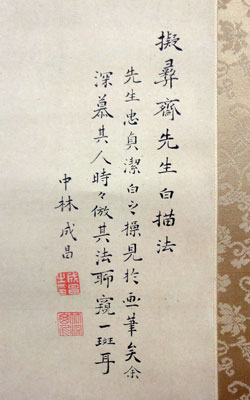 擬彛齋先生白描法
先生忠貞潔白之操見於画筆矣余
深慕其人時々倣其法聊窺一斑耳
中林成昌
成昌